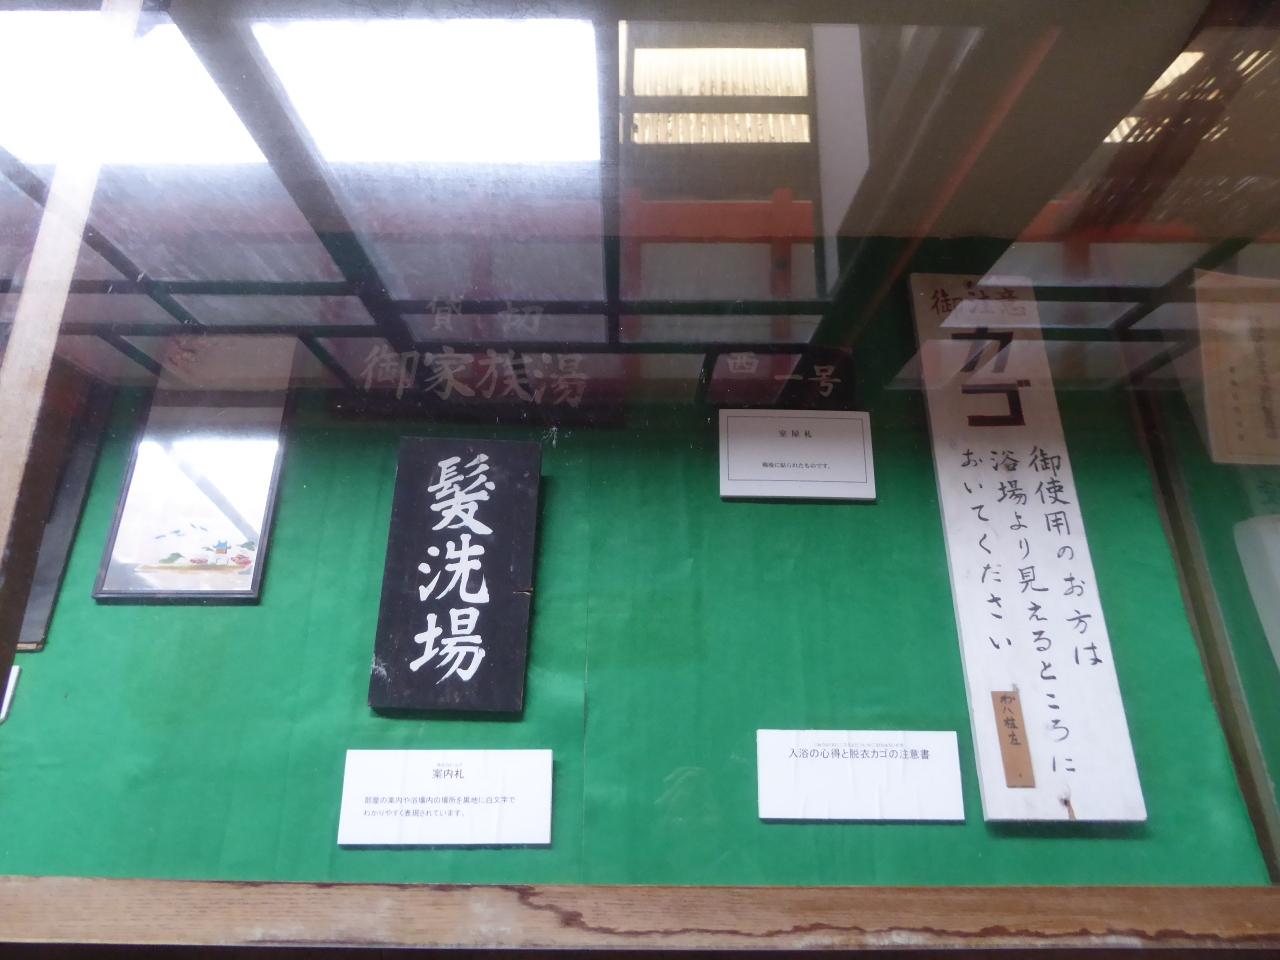 貸切
御家族湯
西一号
室屋札
髪洗場
案内札
部屋の案内や浴場内の場所を黒地に白文字で
わかりやすく表現されています。
入浴の心得と脱衣カゴの注意書
御注意
カゴ
御使用のお方は
浴場より見えるところに
おいてください